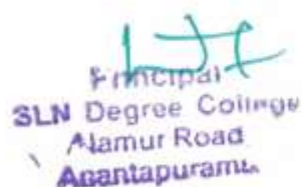 Principal
SLN Degree College
Alamur Road
Anantapuramu.